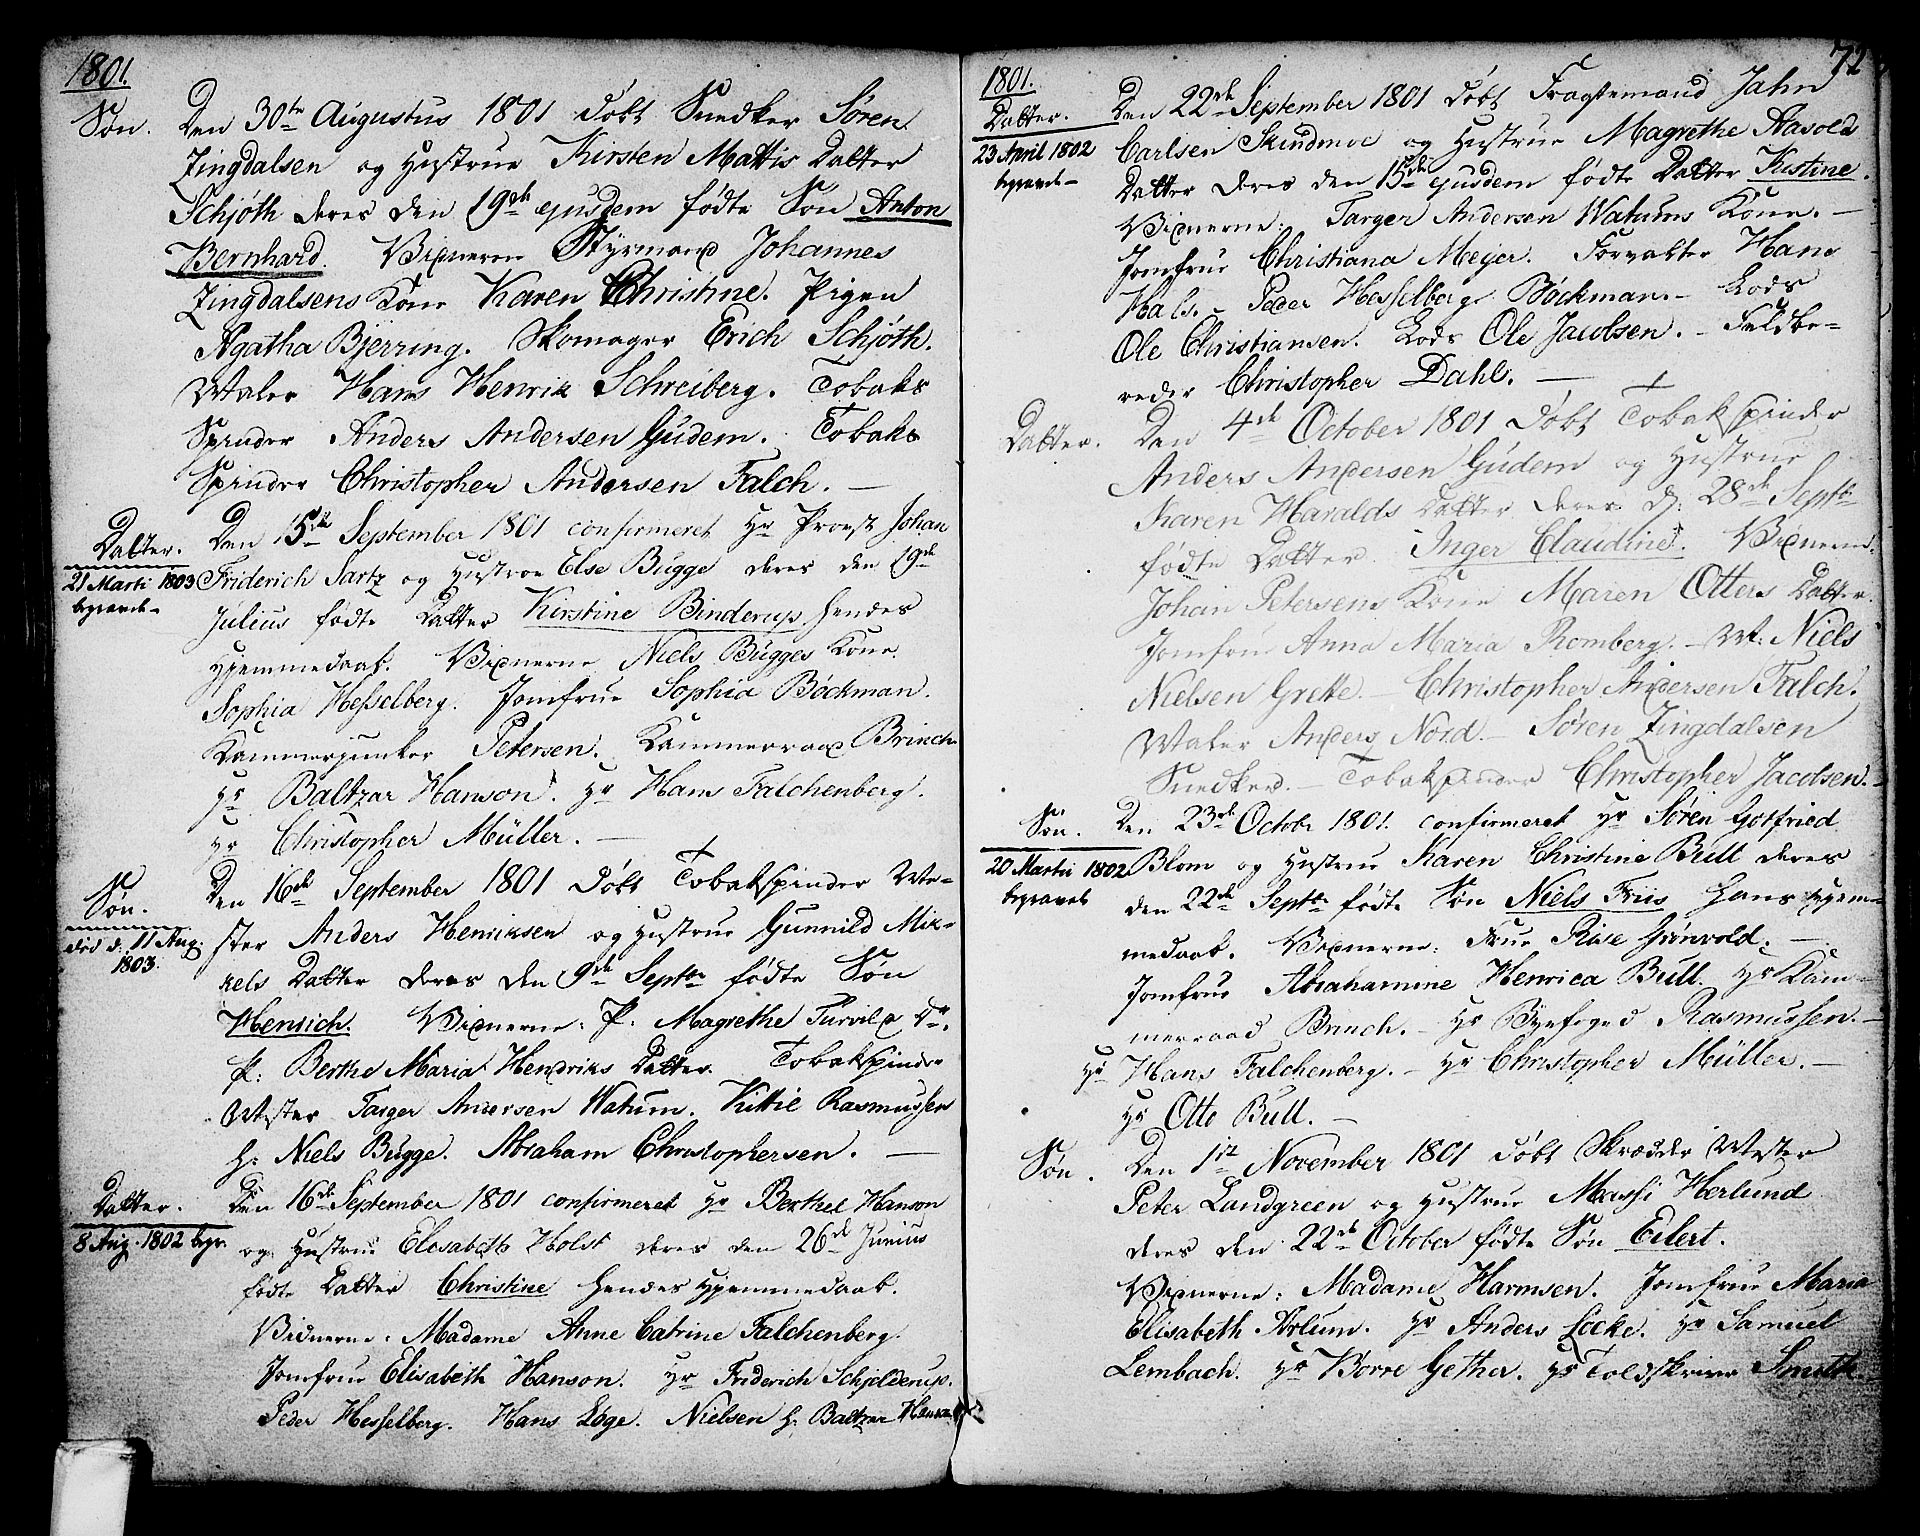 1801.
Søn. Den 30te Augustus 1801 døbt Snedker Søren
Zingdalsen og Hustrue Kirsten Mattis Datter
Schjøth deres den 19de ejusdem fødte Søn Anton
Bernhard. Vidnerne Styrmand Johannes
Zingdalsens Kone Karen Christine. Pigen
Agatha Bjerring. Skomager Erich Schjøth.
Maler Hans Henrik Schreiberg. Tobaks
Spinder Anders Andersen Gudem. Tobaks
Spinder Christopher Andersen Falch. —
Datter. Den 15de September 1801 confirmeret Hr Provst Johan
21 Marti 1803 Friderich Sartz og Hustroe Else Bugge deres den 19de
begravet - Julius fødte Datter Kirstine Binderup hendes
Hjemmedaab. Vidnerne Niels Bugges Kone
Sophia Hesselberg. Jomfrue Sophia Bøckman.
Kammerjunker Petersen. Kammerraad Brinch
Hr Baltzar Hanson. Hr Hans Falchenberg.
Hr Christopher Müller. —
Søn. Den 16de September 1801 døbt Tobakspinder Me-
død d: 11 Aug: ster Anders Henriksen og Hustrue Gunnild Mik-
1803. kels Datter deres den 9de Septbr fødte Søn
Henrich. Vidnerne: P: Magrethe Turvild Dr.
P: Berthe Maria Hendriks Datter. Tobakspinder
Mester Targer Andersen Watum. Kittil Rasmussen
H: Niels Bugge. Abraham Christophersen. —
Datter. Den 16de September 1801 confirmeret Hr Berthel Hanson
8 Aug. 1802 begr. og Hustrue Elesabeth Holst deres den 26de Junius
fødte Datter Christine hendes Hjemmedaab.
Vidnerne: Madame Anne Catrine Falchenberg
Jomfrue Elisabeth Hanson. Hr Friderich Schjelderup.
Peder Hesselberg. Hans Løge. Nielsen H: Baltzar Hanson
72
1801.
Datter. Den 22de September 1801 døbt Fragtemand Jahn
23 April 1802 Carlsen Skindmoe og Hustrue Magrethe Aasolds
begravet - Datter deres den 15de ejusdem fødte Datter Kistine.
Vidnerne: Targer Andersen Watums Kone. —
Jomfrue Christiana Meyer. Forvalter Hans
Hals. - Peder Hesselberg Bøckman. - Lods
Ole Christiansen. Lods Ole Jacobsen. - Feldbe-
reder Christopher Dahl. —
Datter. Den 4de October 1801 døbt Tobakspinder
Anders Andersen Gudem og Hustrue
Karen Haralds Datter deres d: 28de Septbr
fødte Datter Inger Claudine. Vidnerne:
Johan Petersens Kone Maren Otters Datter.
Jomfrue Anna Maria Romberg. - M: Niels
Nielsen Grette. Christopher Andersen Falch.
Maler Anders Nord. - Søren Zingdalsen
Snedker. - Tobakspinder Christopher Jacobsen. -
Søn. Den 23de Octobr 1801. confirmeret Hr Søren Gotfried
20 Martii 1802 Blom og Hustrue Karen Christine Bull deres
begravet den 22de Septbr fødte Søn Niels Friis hans Hjem-
medaab. Vidnerne: Frue Rise Grønvold. —
Jomfrue Abrahamine Henrica Bull. Hr Kam-
merraad Brinch. - Hr Byefoged Rasmussen. -
Hr Hans Falchenberg. - Hr Christopher Müller. —
Hr Otto Bull. —
Søn. Den 1te November 1801 døbt Skrædder Mester
Peter Landgreen og Hustrue Massi Herlund
deres den 22de October fødte Søn Eilert.
Vidnerne: Madame Harmsen. Jomfrue Maria
Elisabeth Arlum. Hr Anders Locke. Hr Samuel
Lembach. Hr Borre Gether. Hr Toldskriver Smith.